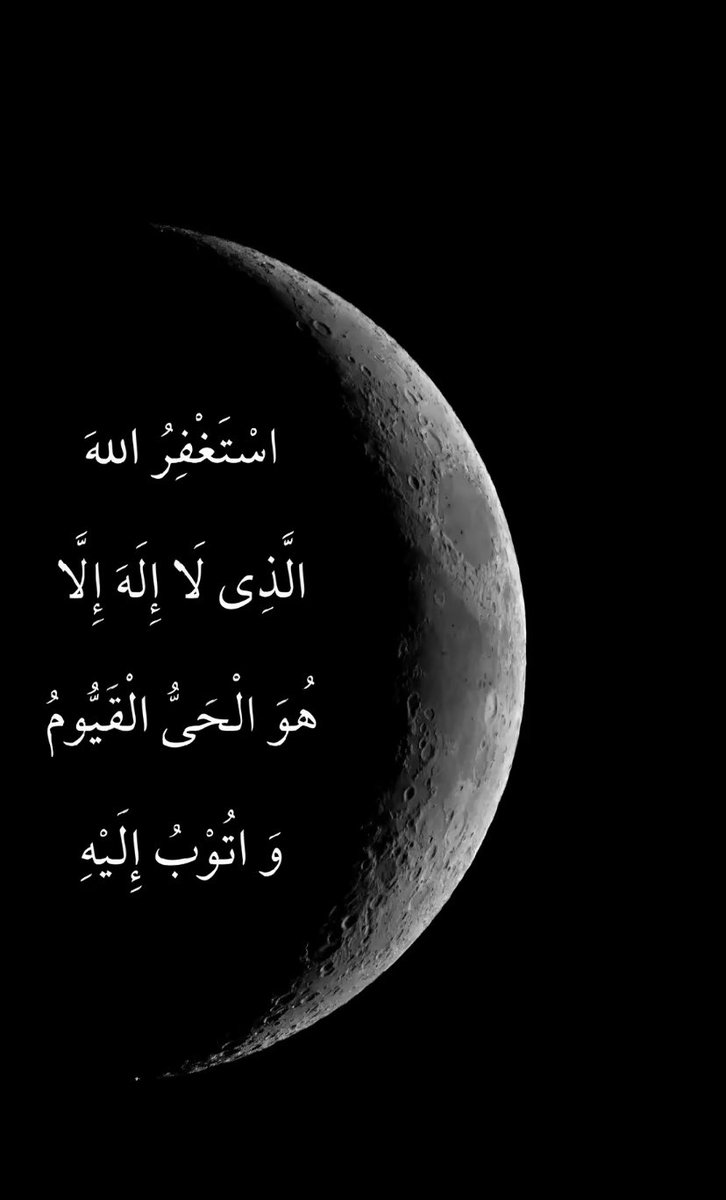 اسْتَغْفِرُ اللهَ
الَّذِى لَا إِلَهَ إِلَّا
هُوَ الْحَىُّ الْقَيُّومُ
وَ اتُوْبُ إِلَيْهِ